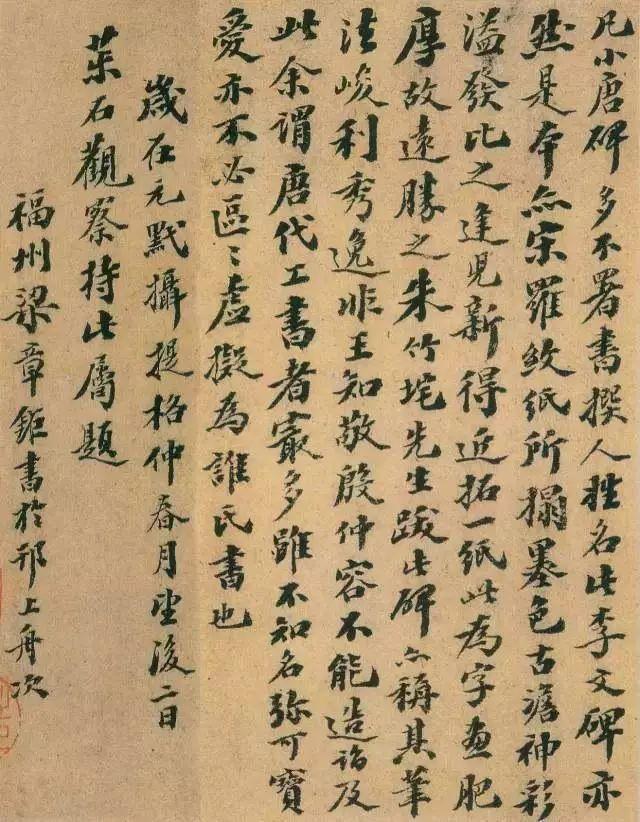 凡小唐碑多不署書撰人姓名此李文碑亦
然是本亦宋羅紋紙所搨墨色古澹神彩
溢發比之逢児新得近拓一紙此為字畫肥
厚故遠勝之朱竹垞先生跋此碑亦稱其筆
法峻利秀逸非王知敬殷仲容不能造詣及
此余謂唐代工書者㝡多雖不知名弥可寶
愛亦不必區〻虛擬為誰氏書也
歲在元黓攝提格仲春月望後二日
茮石觀察持此屬題
福州梁章鉅書於邗上舟次